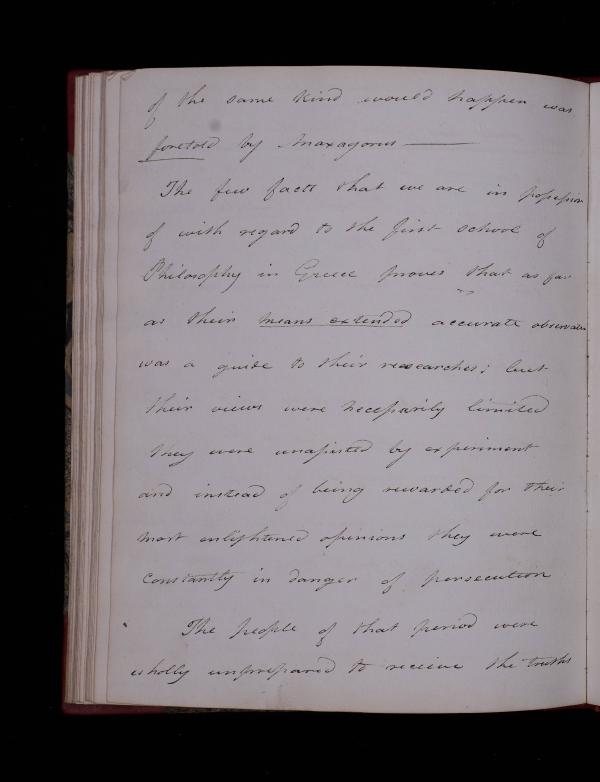 of the same kind would happen was
foretold by Anaxagoras ———
The few facts that we are in possession
of with regard to the first school of
Philosophy in Greece proves that as far
as their means extended accurate observation
was a guide to their researches; but
their views were necessarily limited
they were unassisted by experiment
and instead of being rewarded for their
most enlightened opinions they were
constantly in danger of persecution
The people of that period were
wholly unprepared to receive the truths